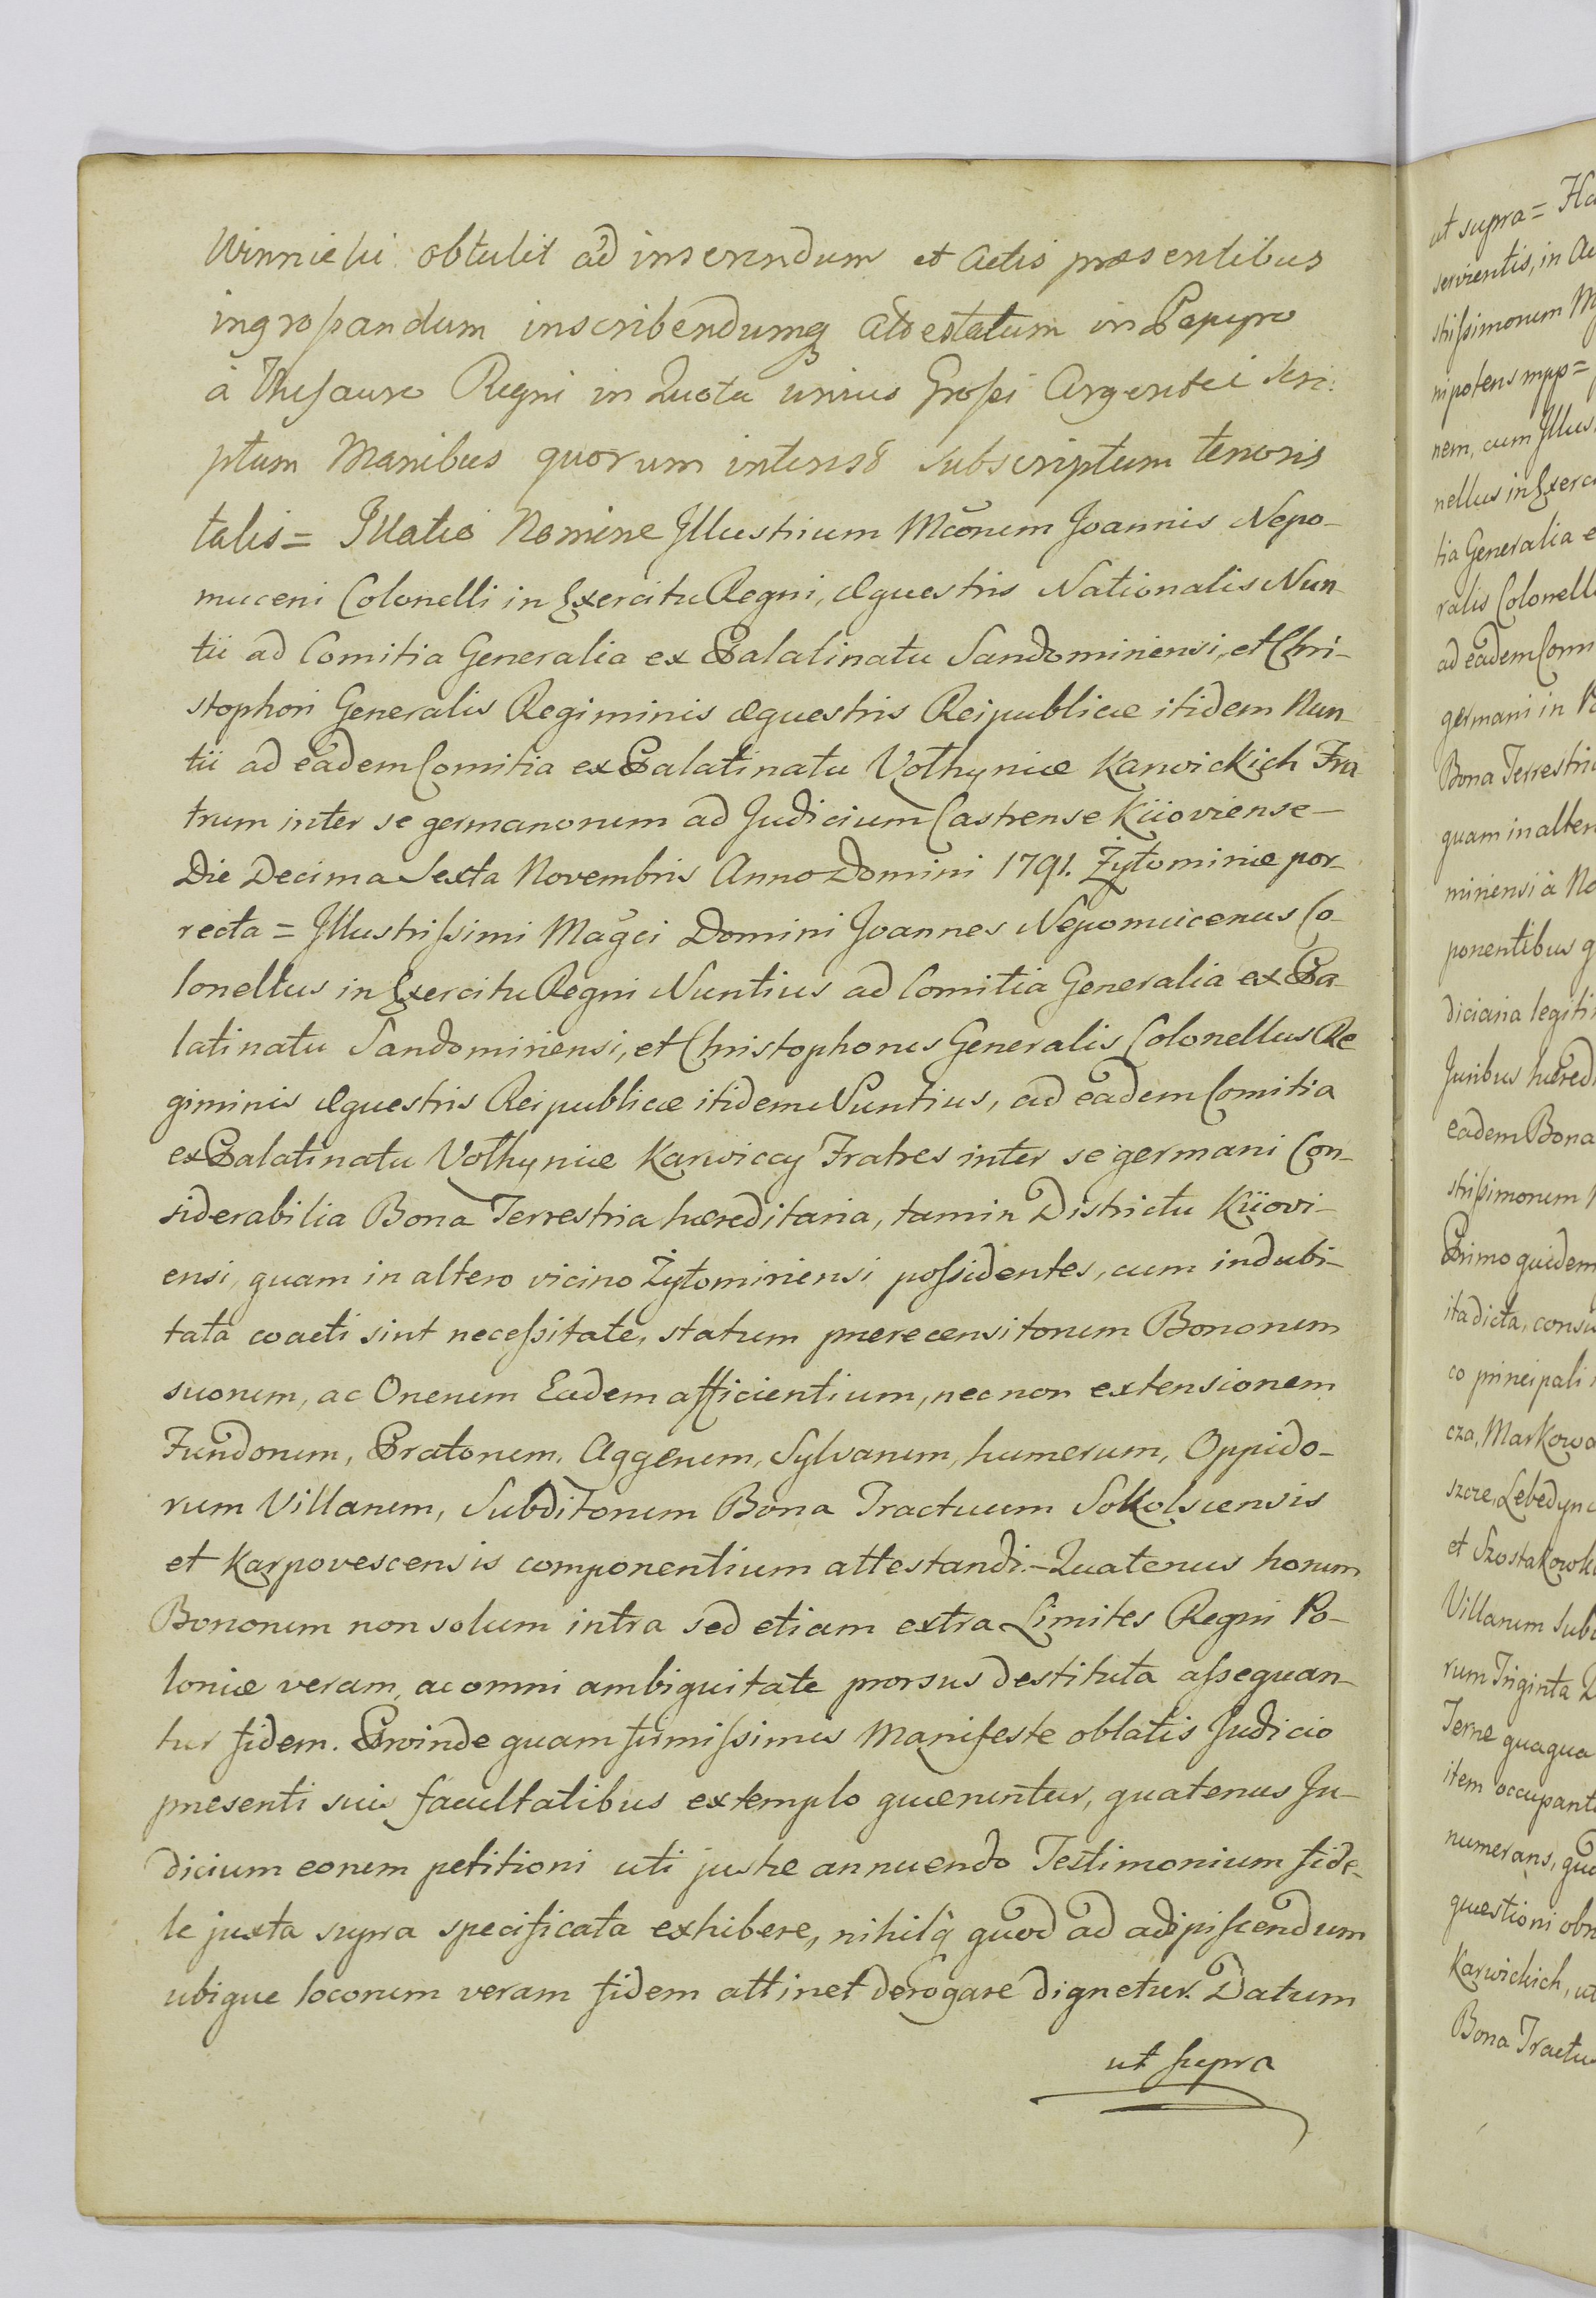 Winnicki obtulit ad inserendum et Actis præsentibus
ingroſsandum inscribendumq̃ Attestatum in Papyro
à Theſauro Regni in Quota unius Groſsi Argentei scri-
ptum Manibus quorum interest subscriptum tenoris
talis = Illatio Nomine Jllustrium Mcõrum Joannis Nepo-
muceni Colonelli in Exercitu Regni, Æquestris Nationalis Nun-
tii ad Comitia Generalia ex Palatinatu Sandomiriensi, et Chri-
stophori Generalis Regiminis æquestris Reipublicæ itidem Nun-
tii ad eadem Comitia ex Palatinatu Volhyniæ Karwickich Fra-
trum inter se germanorum ad Judicium Castrense Kiioviense -
Die Decima Sexta Novembris Anno Domini 1791. Żytomiriæ por-
recta = Jllustriſsimi Magci Domini Joannes Nepomucenus Co-
lonellus in Exercitu Regni Nuntius ad Comitia Generalia ex Pa-
latinatu Sandomiriensi, et Christophorus Generalis Colonellus Re
giminis æquestris Reipublicæ itidem Nuntius, ad eadem Comitia
ex Palatinatu Volhyniæ Karwiccy Fratres inter se germani Con-
siderabilia Bona Terrestria hæreditaria, tam in Districtu Kiiovi-
ensi, quam in altero vicino Żytomiriensi poſsidentes, cum indubi-
tata coacti sint neceſsitate, statum præcensitorum Bonorum
suorum, ac Onerum Eadem afficientium, nec non extensionem
Fundorum, Pratorum, Aggerum, Sylvarum, humerum, Oppido-
rum Villarum, Subditorum Bona Tractuum Sokolscensis
et Karpovescensis componentium attestandi. - Quatenus horum
Bonorum non solum intra sed etiam extra Limites Regni Po-
loniæ veram, ac omni ambiguitate prorsus destituta aſsequan-
tur fidem. Proinde quam firmiſsimis Manifeste oblatis Judicio
præsenti suis facultatibus extemplo quæruntur, quatenus Ju-
dicium eorum petitioni uti justæ annuendo Testimonium fide-
le juxta supra specificata exhibere, nihilq̃ quod ad adipiſcendum
ubique locorum veram fidem attinet derogare dignetur. Datum
ut supra
ut supra = Ha
servientis, in Ac
striſsimorum M
nipotens mpp =
nem, cum Jllus
nellus in Exerci
tia Generalia e
ralis Colonell
ad eadem Com
germani in
Bona Terrestri
quam in alter
miriensi à No
ponentibus q
diciaria legiti
Juribus hæred
eadem Bona
striſsimorum
Primo quidem
ita dicta, consu
co principali
cza, Markowa
szcze, Lebedync
et Szostakowk
Villarum Sub
rum Triginta
Terne quaqua
item occupant
numerans, qu
quæstioni obn
Karwickich, ut
Bona Tractu